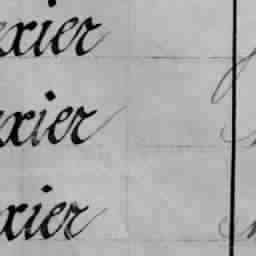 exier
exier
xier